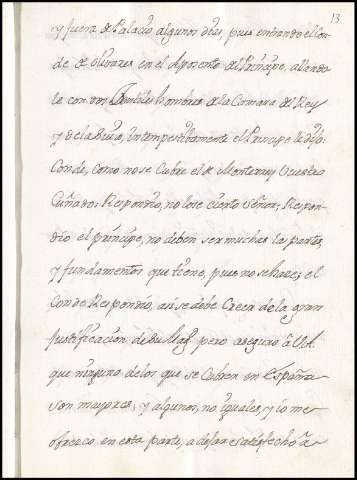 13
y fuera de Palacio algunos dias, pues entrando el Con
de de Olivares en el Aposento del Principe, allando
le con dos Gentiles hombres de la Camara del Rey
y de la Suia, intempestibamente el Principe le dijo:
Conde, como no se Cubre el de Monterrey Vuestro
Cuñado: Respondio, no lo se cierto Señor; Respon-
dio el principe, no deben ser muchas las partes,
y fundamentos que tiene, pues no se hace; el
Conde Respondio, asi se debe Creer de la gran
Justificacion de Su Magd pero aseguro à V.A.
que ninguno de los que se Cubren en España
son mayores; y algunos, no iguales, y io me
ofrezco en esta parte, a dejar satisfecho a